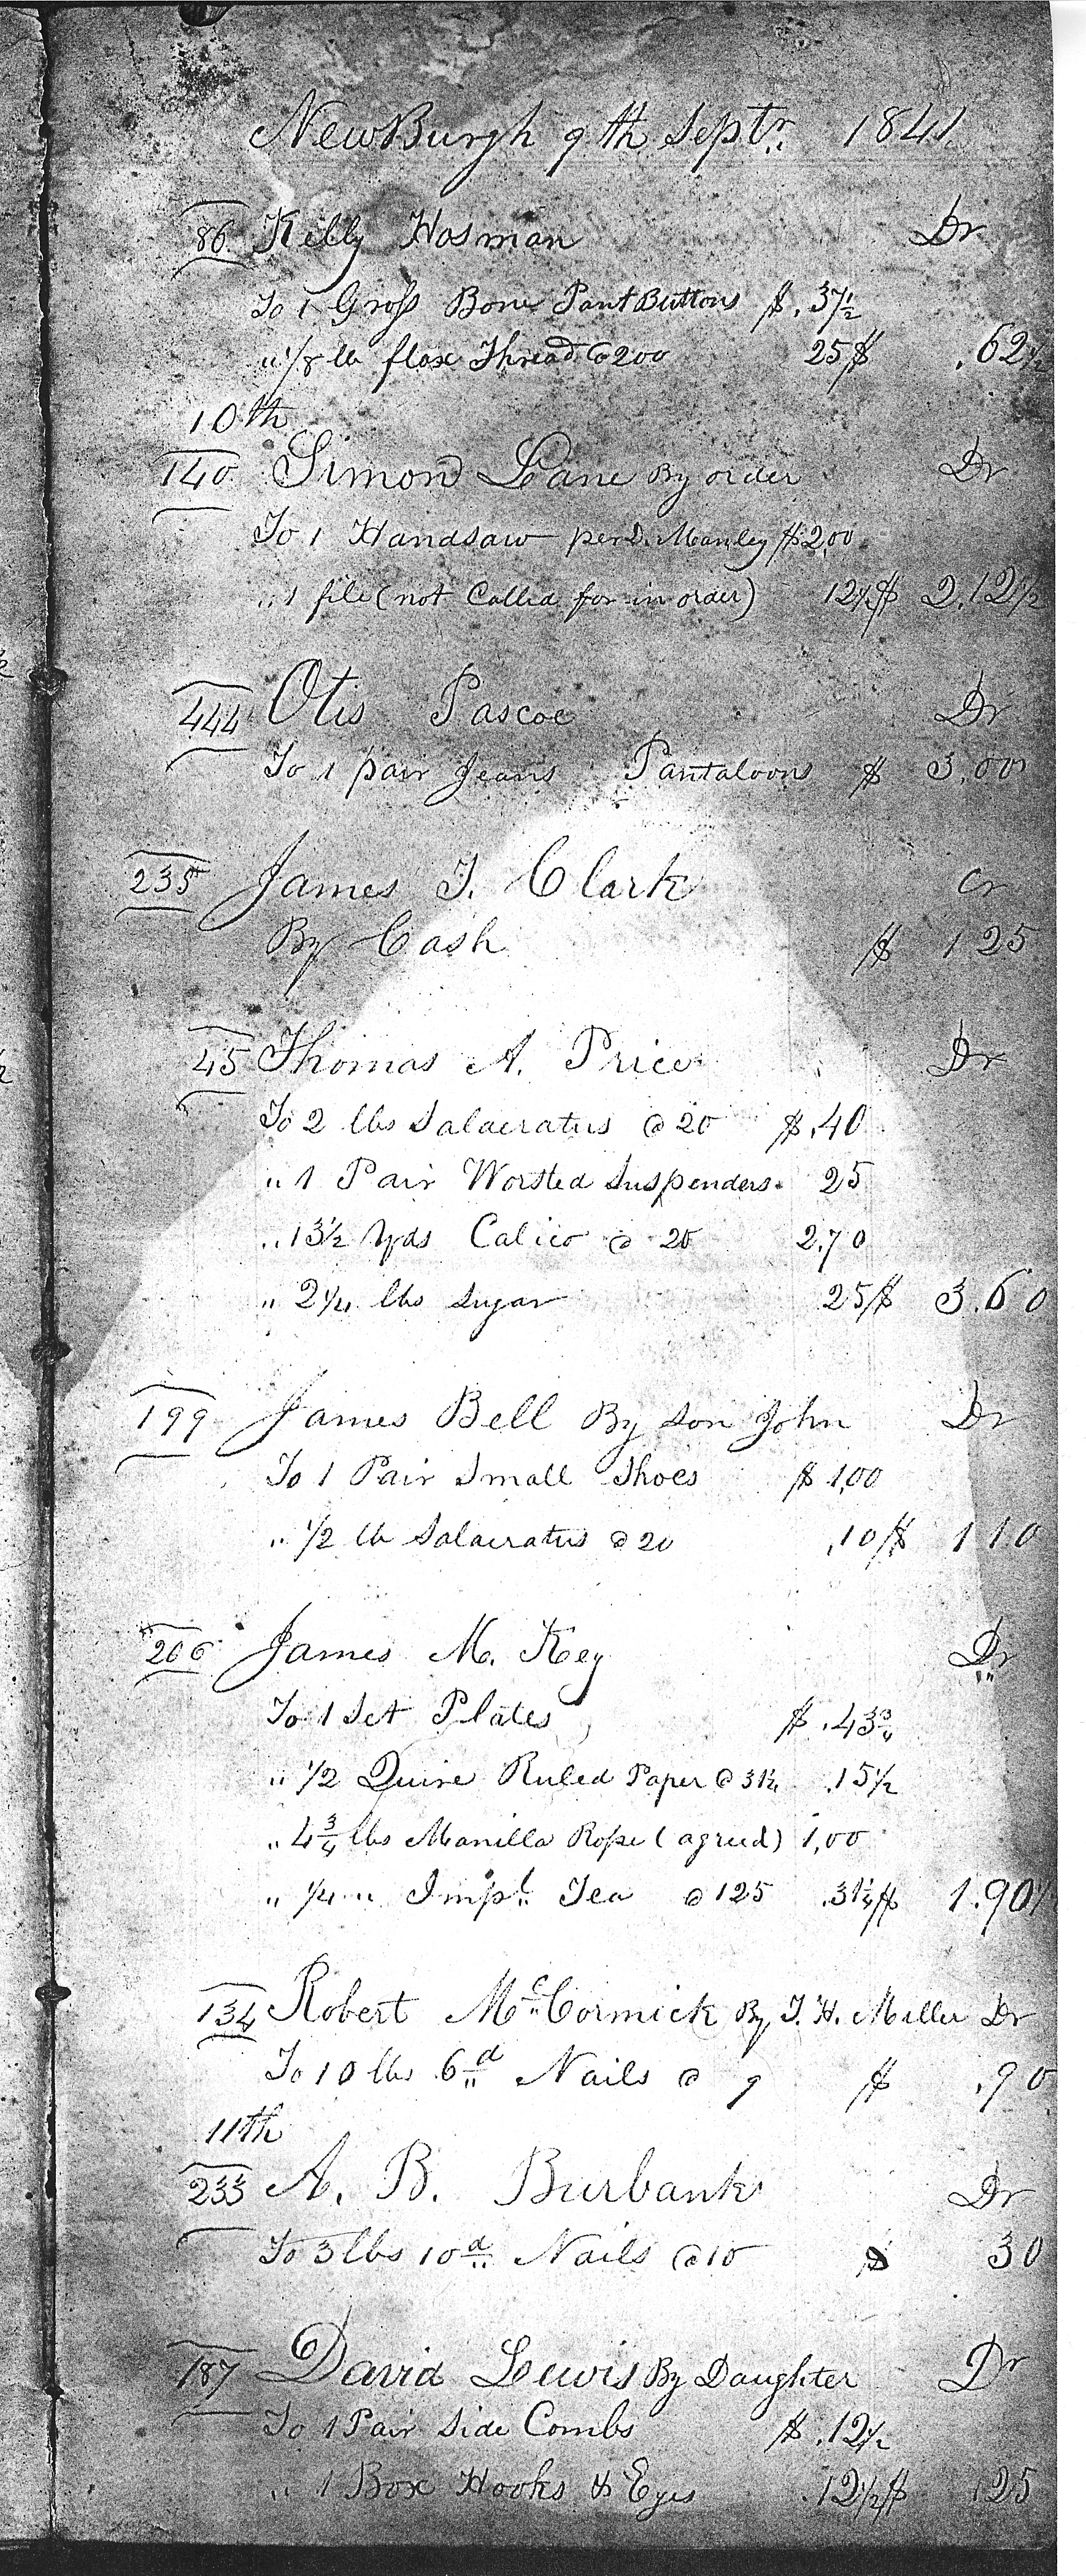 NewBurgh 9th Septr. 1841
86 Kelly Hosman Dr
To 1 Gross Bone Pant Buttons $ .37½
" 1/8 lb flax Thread @ 200 25 $ .62½
10th
140 Simon Lane By order Dr
To 1 Handsaw per D. Manley $ 2,00
" 1 file (not Called for in order) 12½ $ 2.12½
444 Otis Pascoe Dr
To 1 pair Jeans Pantaloons $ 3,00
235 James T. Clark Cr
By Cash $ 1 25
45 Thomas A. Price Dr
To 2 lbs Salaeratus @ 20 $ .40
" 1 Pair Worsted Suspenders. 25
" 13½ Yds Calico @ 20 2.70
" 2¼ lbs Sugar 25 $ 3.60
199 James Bell By Son John Dr
To 1 Pair Small Shoes $ 1,00
" ½ lb Salaeratus @ 20 .10 $ 1 10
206 James M. Key Dr
To 1 Set Plates $ .43¾
" ½ Quire Ruled Paper @ 31¼ .15½
" 4¾ lbs Manilla Rope (agreed) 1,00
" ¼ " Impl. Tea @ 125 .31¼ $ 1.90½
134 Robert McCormick By T. H. Miller Dr
To 10 lbs 6d Nails @ 9 $ .90
11th
233 A. B. Burbank Dr
To 3 lbs 10d Nails @ 10 $ 30
187 David Lewis By Daughter Dr
To 1 Pair Side Combs $ .12½
" 1 Box Hooks & Eyes .12½ $ 125